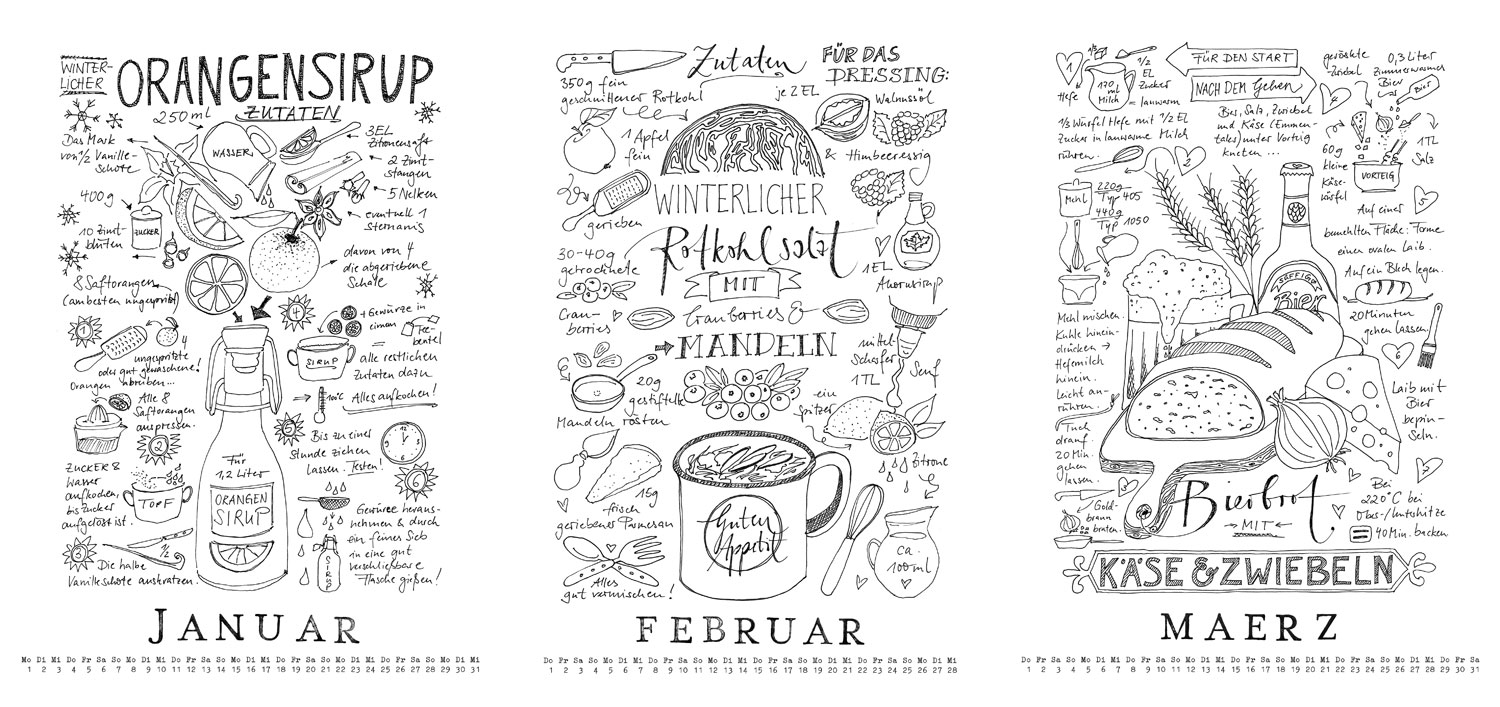 WINTER-
LICHER
ORANGENSIRUP
ZUTATEN
250 ml
WASSER
3EL
Zitronensaft
Das Mark
von ½ Vanille-
schote
2 Zimt-
stangen
5 Nelken
400g
ZUCKER
eventuell 1
Sternanis
10 Zimt-
blüten
davon von 4
die abgeriebene
Schale
8 Saftorangen
(am besten ungespritzt)
1
4
ungespritzte
oder gut gewaschene!
Orangen abreiben...
4
+ Gewürze in
einem Tee-
beutel
SIRUP
alle restlichen
Zutaten dazu
100°C
Alles aufkochen!
Alle 8
Saftorangen
auspressen.
2
5
Bis zu einer
Stunde ziehen
lassen. Testen!
ZUCKER &
Wasser
aufkochen,
bis Zucker
aufgelöst ist.
TOPF
6
Gewürze heraus-
nehmen & durch
ein feines Sieb
in eine gut
verschließbare
Flasche gießen!
SIRUP
3
½
Die halbe
Vanilleschote auskratzen!
Für
1,2 Liter
ORANGEN
SIRUP
JANUAR
Mo Di Mi Do Fr Sa So Mo Di Mi Do Fr Sa So Mo Di Mi Do Fr Sa So Mo Di Mi Do Fr Sa So Mo Di Mi
1 2 3 4 5 6 7 8 9 10 11 12 13 14 15 16 17 18 19 20 21 22 23 24 25 26 27 28 29 30 31
Zutaten
FÜR DAS
DRESSING:
350g fein
geschnittener Rotkohl
je 2 EL
Walnussöl
1 Apfel
fein
gerieben
& Himbeeressig
WINTERLICHER
Rotkohlsalat
MIT
Cranberries &
MANDELN
30-40g
getrocknete
Cran-
berries
1EL
Ahornsirup
mittel-
scharfer
1TL
Senf
20g
gestiftelte
Mandeln rösten
ein
Spritzer
Zitrone
15g
frisch
geriebener Parmesan
Guten
Appetit
ca.
100ml
Alles
gut vermischen!
FEBRUAR
Do Fr Sa So Mo Di Mi Do Fr Sa So Mo Di Mi Do Fr Sa So Mo Di Mi Do Fr Sa So Mo Di Mi
1 2 3 4 5 6 7 8 9 10 11 12 13 14 15 16 17 18 19 20 21 22 23 24 25 26 27 28
FÜR DEN START
NACH DEM Gehen
1
Hefe
⅓
170
ml
Milch
½
EL
Zucker
= lauwarm
½ Würfel Hefe mit ½ EL
Zucker in lauwarme Milch
rühren.
2
Mehl
220g
Typ 405
440g
Typ 1050
Mehl mischen.
Kuhle hinein-
drücken →
Hefemilch
hinein.
leicht an-
rühren.
Tuch
drauf.
20 Min.
gehen
lassen.
3
Gold-
braun
braten.
Bier, Salz, Zwiebel
und Käse (Emmen-
taler) unter Vorteig
kneten ...
4
geröstete
Zwiebel
0,3 Liter
zimmerwarmes
Bier
Bier
60g
kleine
Käse-
würfel
1TL
Salz
VORTEIG
5
Auf einer
bemehlten Fläche: Forme
einen ovalen Laib.
Auf ein Blech legen.
20 Minuten
gehen lassen
6
Laib mit
Bier
bepin-
seln.
Bei
220°C bei
Ober-/Unterhitze
40 Min. backen
SÜFFIGES
Bier
Bierbrot
MIT
KÄSE & ZWIEBELN
MAERZ
Do Fr Sa So Mo Di Mi Do Fr Sa So Mo Di Mi Do Fr Sa So Mo Di Mi Do Fr Sa So Mo Di Mi Do Fr Sa
1 2 3 4 5 6 7 8 9 10 11 12 13 14 15 16 17 18 19 20 21 22 23 24 25 26 27 28 29 30 31